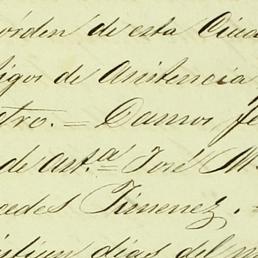 órden de esta Ciud
tigos de Asistencia
tro. = Damos fe
de ant.ª José M
cedes Jimenez. =
días del m